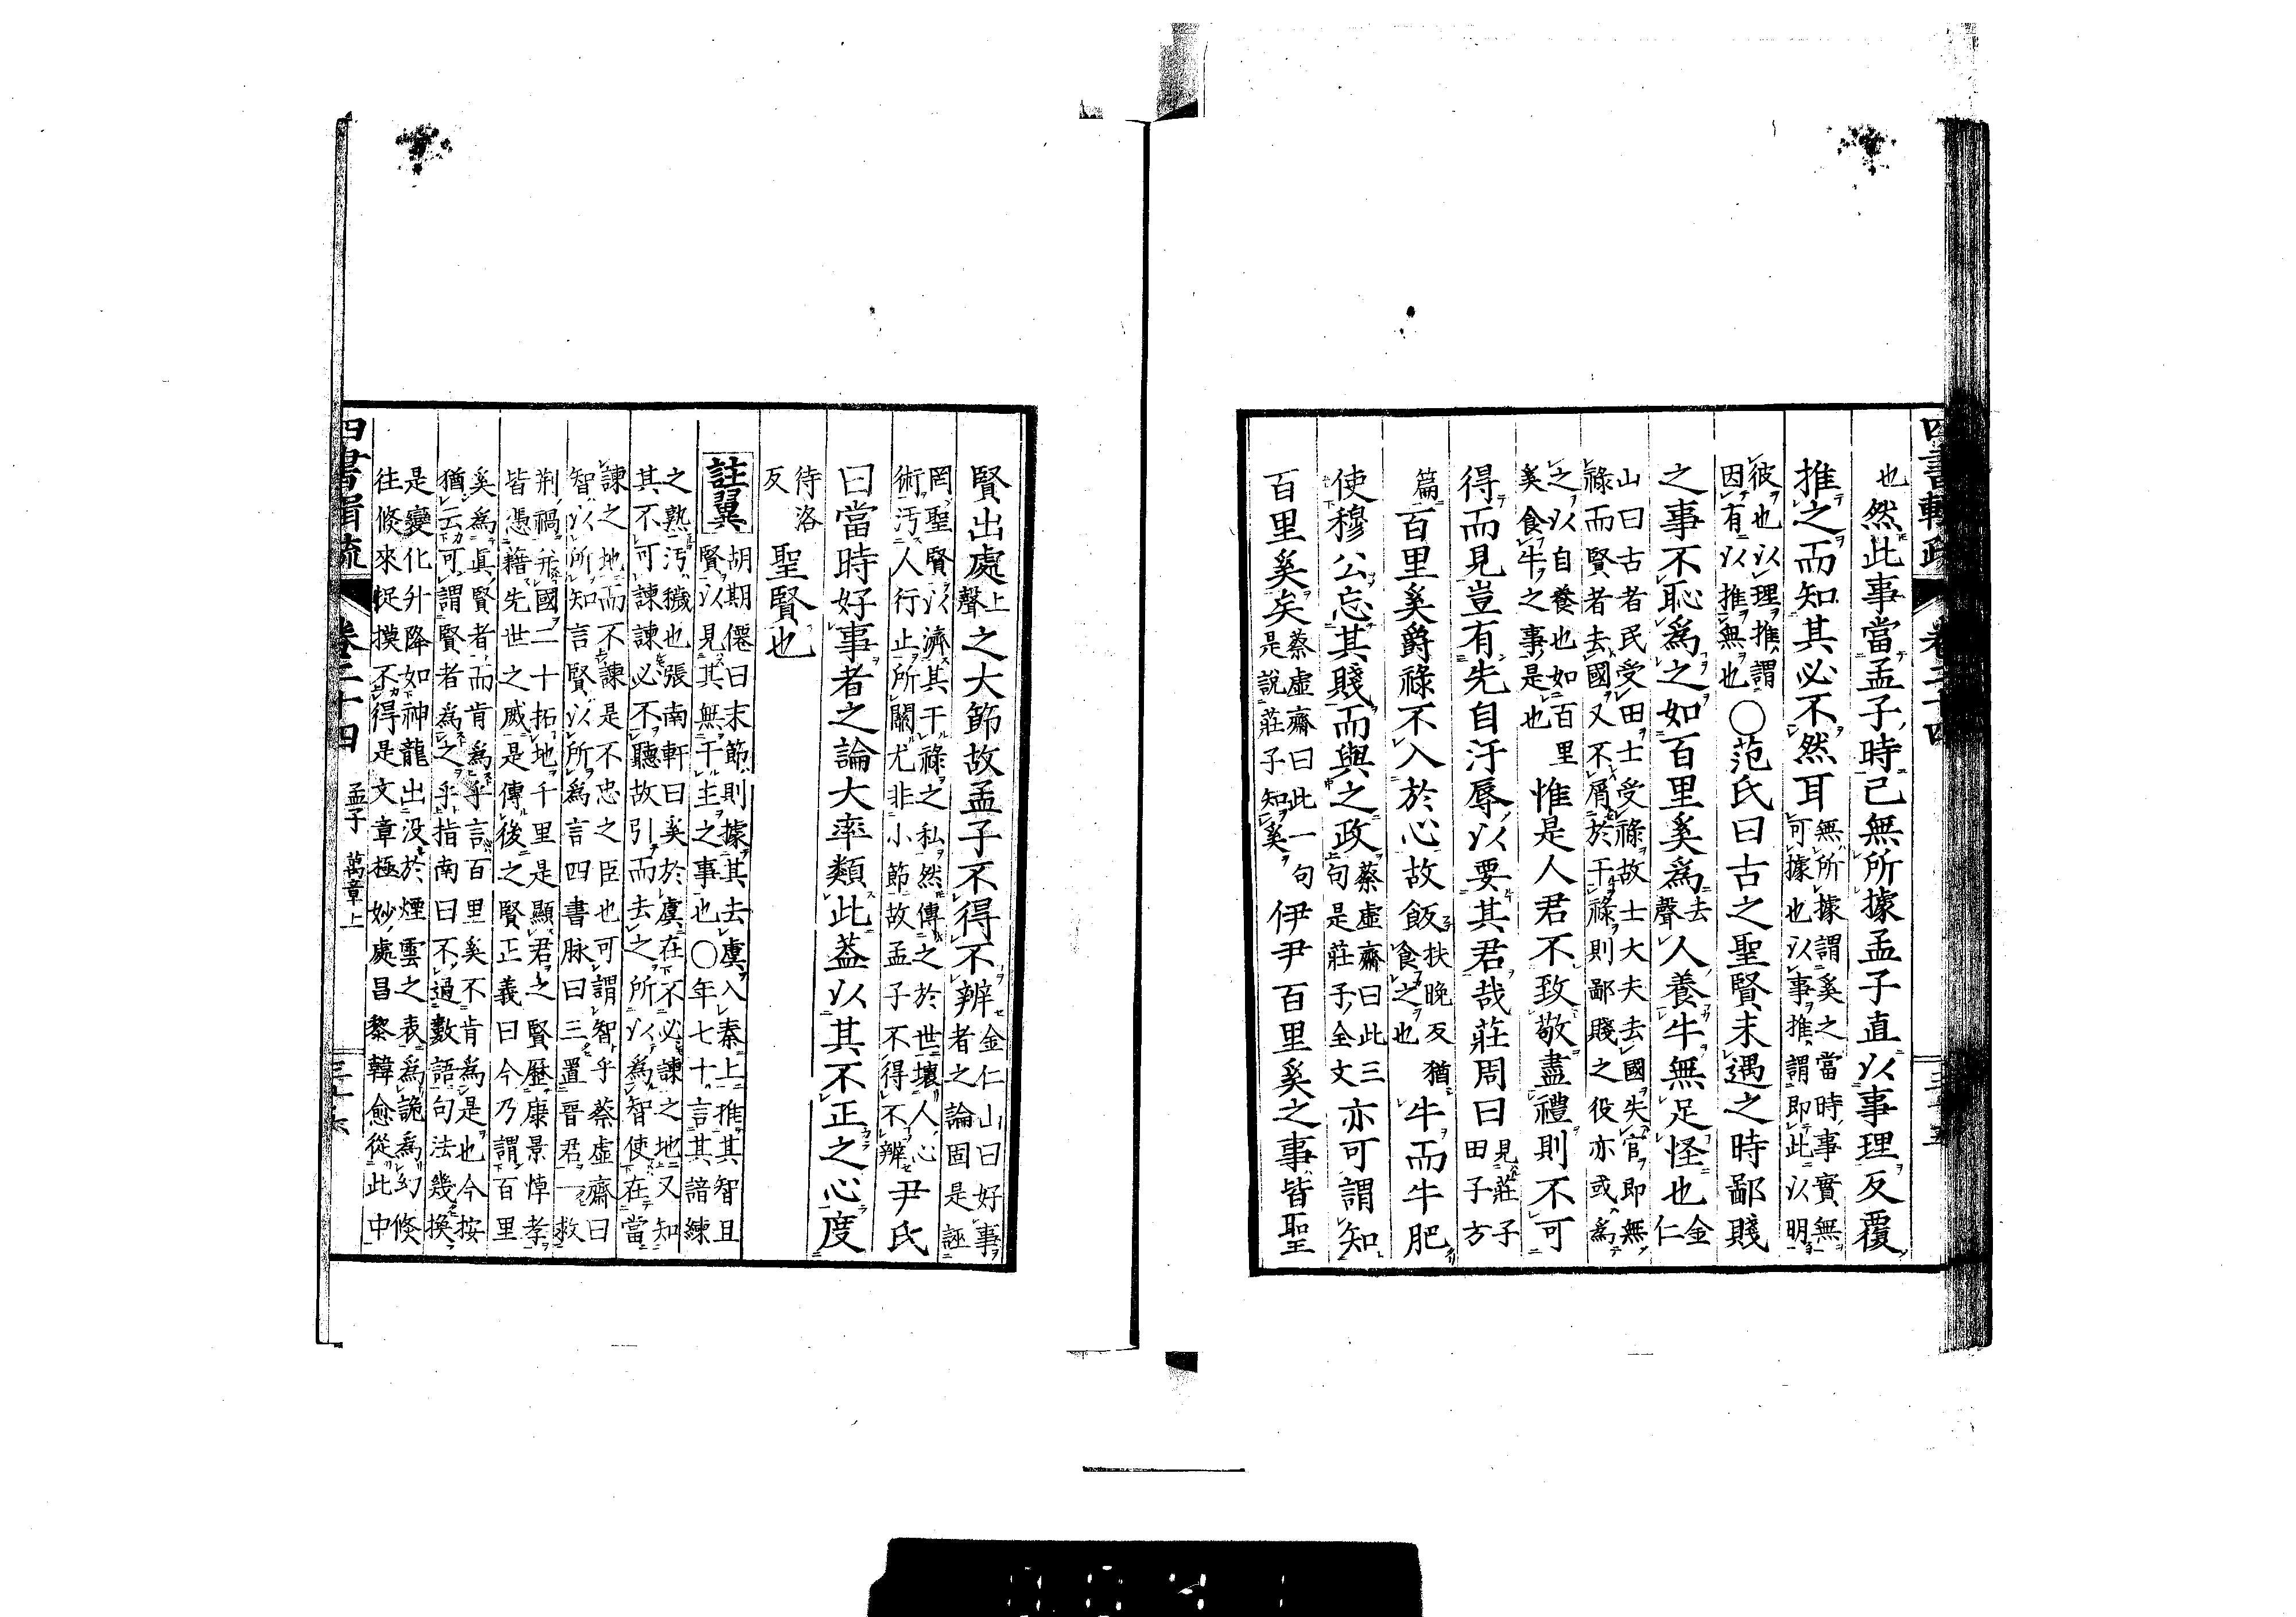 四書輯疏 卷二十四
也然此事當孟子時已無所據孟子直以事理反覆
推之而知其必不然耳無所據謂奚之當時事實無
可據也以事推謂即此以明
彼也以理推謂
因有以推無也〇范氏曰古之聖賢未遇之時鄙賤
之事不恥為之如百里奚為去聲人養牛無足怪也金
仁
山曰古者民受田士受祿故士大夫去國失官即無
祿而賢者去國又不屑於干祿則鄙賤之役亦或為
之以自養也如百里
奚食牛之事是也惟是人君不致敬盡禮則不可
得而見豈有先自汙辱以要其君哉莊周曰見莊子
田子方
篇百里奚爵祿不入於心故飯扶晚反猶
食之也牛而牛肥
使穆公忘其賤而與之政蔡虛齋曰此三
句是莊子全文亦可謂知
百里奚矣蔡虛齋曰此一句
是說莊子知奚伊尹百里奚之事皆聖
賢出處上聲之大節故孟子不得不辨金仁山曰好事
者之論固是誣
罔聖賢以濟其干祿之私然傳之於世壞人心
術汚人行止所關尤非小節故孟子不得不辨尹氏
曰當時好事者之論大率類此蓋以其不正之心度
待洛
反聖賢也
註翼胡期僊曰末節則據其去虞入秦上推其智且
賢以見其無干主之事也〇年七十言其諳練
之熟汚穢也張南軒曰奚於虞在不必諫之地又知
其不可諫諫必不聽故引而去之所以為智使在當
諫之地而不諫是不忠之臣也可謂智乎蔡虛齋曰
智以所知言賢以所為言四書脉曰三置晉君一救
荆禍并國二十拓地千里是顯君之賢歷康景悼孝
皆憑藉先世之威是傳後之賢正義曰今乃謂百里
奚為真賢者而肯為乎言百里奚不肯為是也今按
猶云可謂賢者為之乎指南曰不過數語句法幾換
是變化升降如神龍出没於煙雲之表為詭為幻倏
往倏來捉摸不得是文章極妙處昌黎韓愈從此中
四書輯疏 卷二十四 孟子 萬章上 三十六